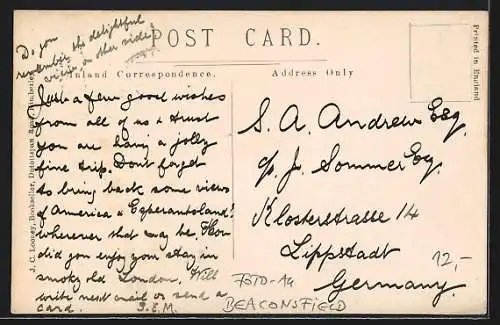 Do you
remember the delightful
view on other side?
POST CARD.
Inland Correspondence.
Address Only
Printed in England
J. C. Looney, Bookseller, Dutoitspan Road, Kimberley.
Just a few good wishes
from all of us & trust
you are having a jolly
fine trip. Dont forget
to bring back some views
of America & Esperantoland!
wherever that may be. How
did you enjoy your stay in
smoky old London. Will
write next mail or send a
card. J.E.M.
S. A. Andrews Esq.
c/o J. Sommer Esq.
Klosterstrasse 14
Lippstadt
Germany.
12,-
FOTO-14
BEACONSFIELD